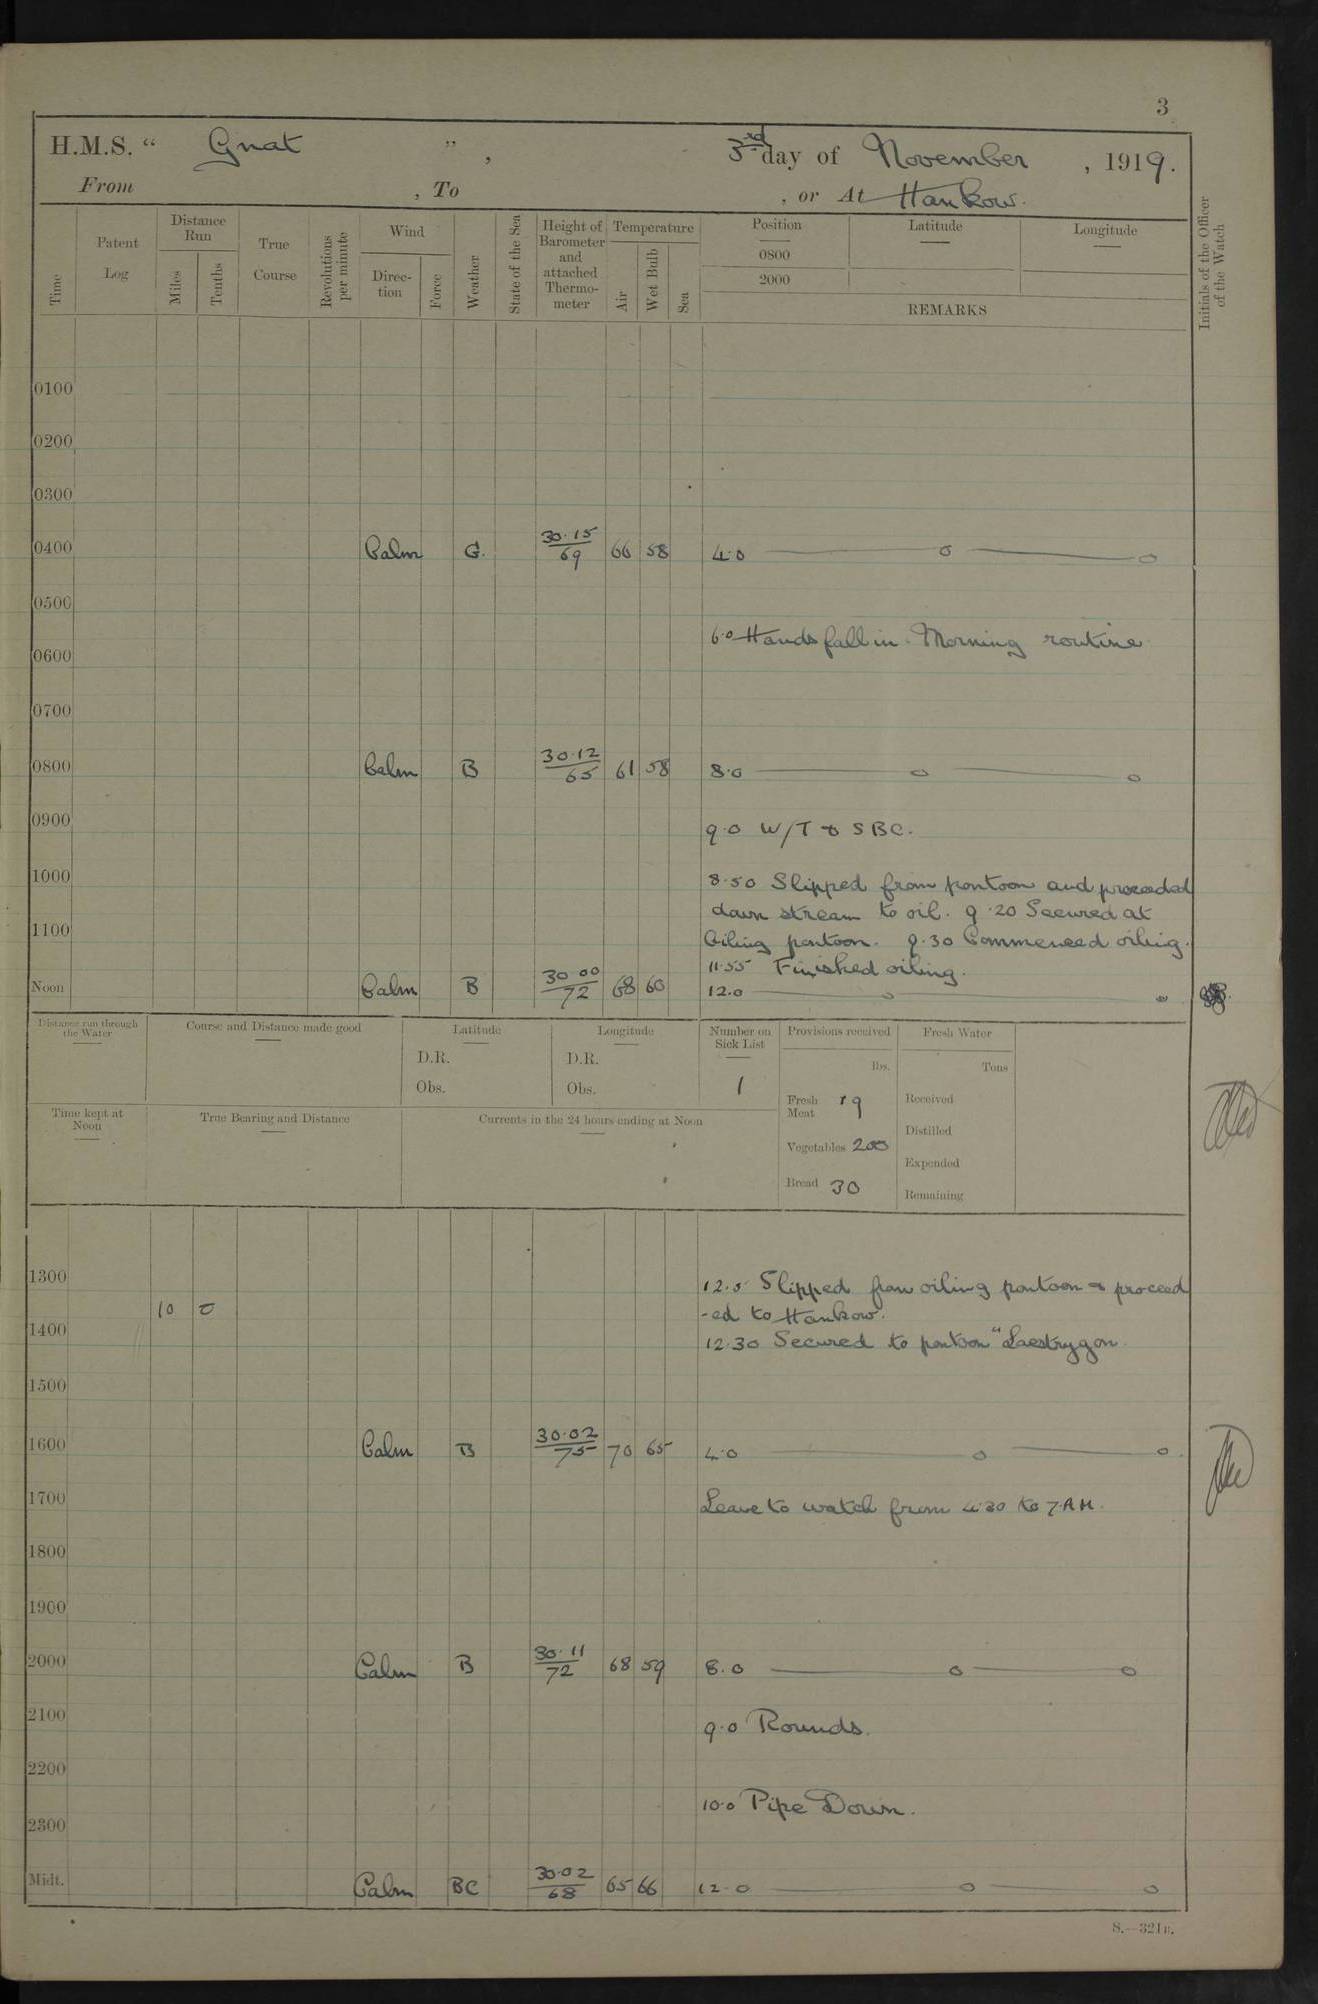 3
H.M.S. “ Gnat ” , 3rd day of November , 1919.
From , To , or At Hankow.
Time
Patent Log
Distance Run
Miles
Tenths
True Course
Revolutions per minute
Wind
Direc-tion
Force
Weather
State of the Sea
Height of Barometer and attached Thermo-meter
Temperature
Air
Wet Bulb
Sea
Position
0800
2000
Latitude
Longitude
REMARKS
Initials of the Officer of the Watch
0100
0200
0300
0400 Calm G. 30.15/69 66 58 4.0 —— o —— o
0500
6.0 Hands fall in. Morning routine
0600
0700
0800 Calm B 30.12/65 61 58 8.0 —— o —— o
0900 9.0 W/T & SBC.
1000 8.50 Slipped from pontoon and proceeded
down stream to oil. 9.20 Secured at
1100 Oiling pontoon. 9.30 Commenced oiling.
11.55 Finished oiling.
Noon Calm B 30 00/72 68 60 12.0 —— o —— o
Distance run through the Water
Course and Distance made good
Latitude
D.R.
Obs.
Longitude
D.R.
Obs.
Number on Sick List
1
Provisions received
lbs.
Fresh Meat 19
Vegetables 200
Bread 30
Fresh Water
Tons
Received
Distilled
Expended
Remaining
Time kept at Noon
True Bearing and Distance
Currents in the 24 hours ending at Noon
1300 12.5 Slipped from oiling pontoon & proceed
10 0 -ed to Hankow.
1400 12.30 Secured to pontoon "Laestrygon
1500
1600 Calm B 30.02/75 70 65 4.0 —— o —— o
1700 Leave to watch from 4.30 to 7.AM.
1800
1900
2000 Calm B 30.11/72 68 59 8.0 —— o —— o
2100 9.0 Rounds.
2200
10.0 Pipe Down.
2300
Midt. Calm BC 30.02/68 65 66 12.0 —— o —— o
S.—321B.